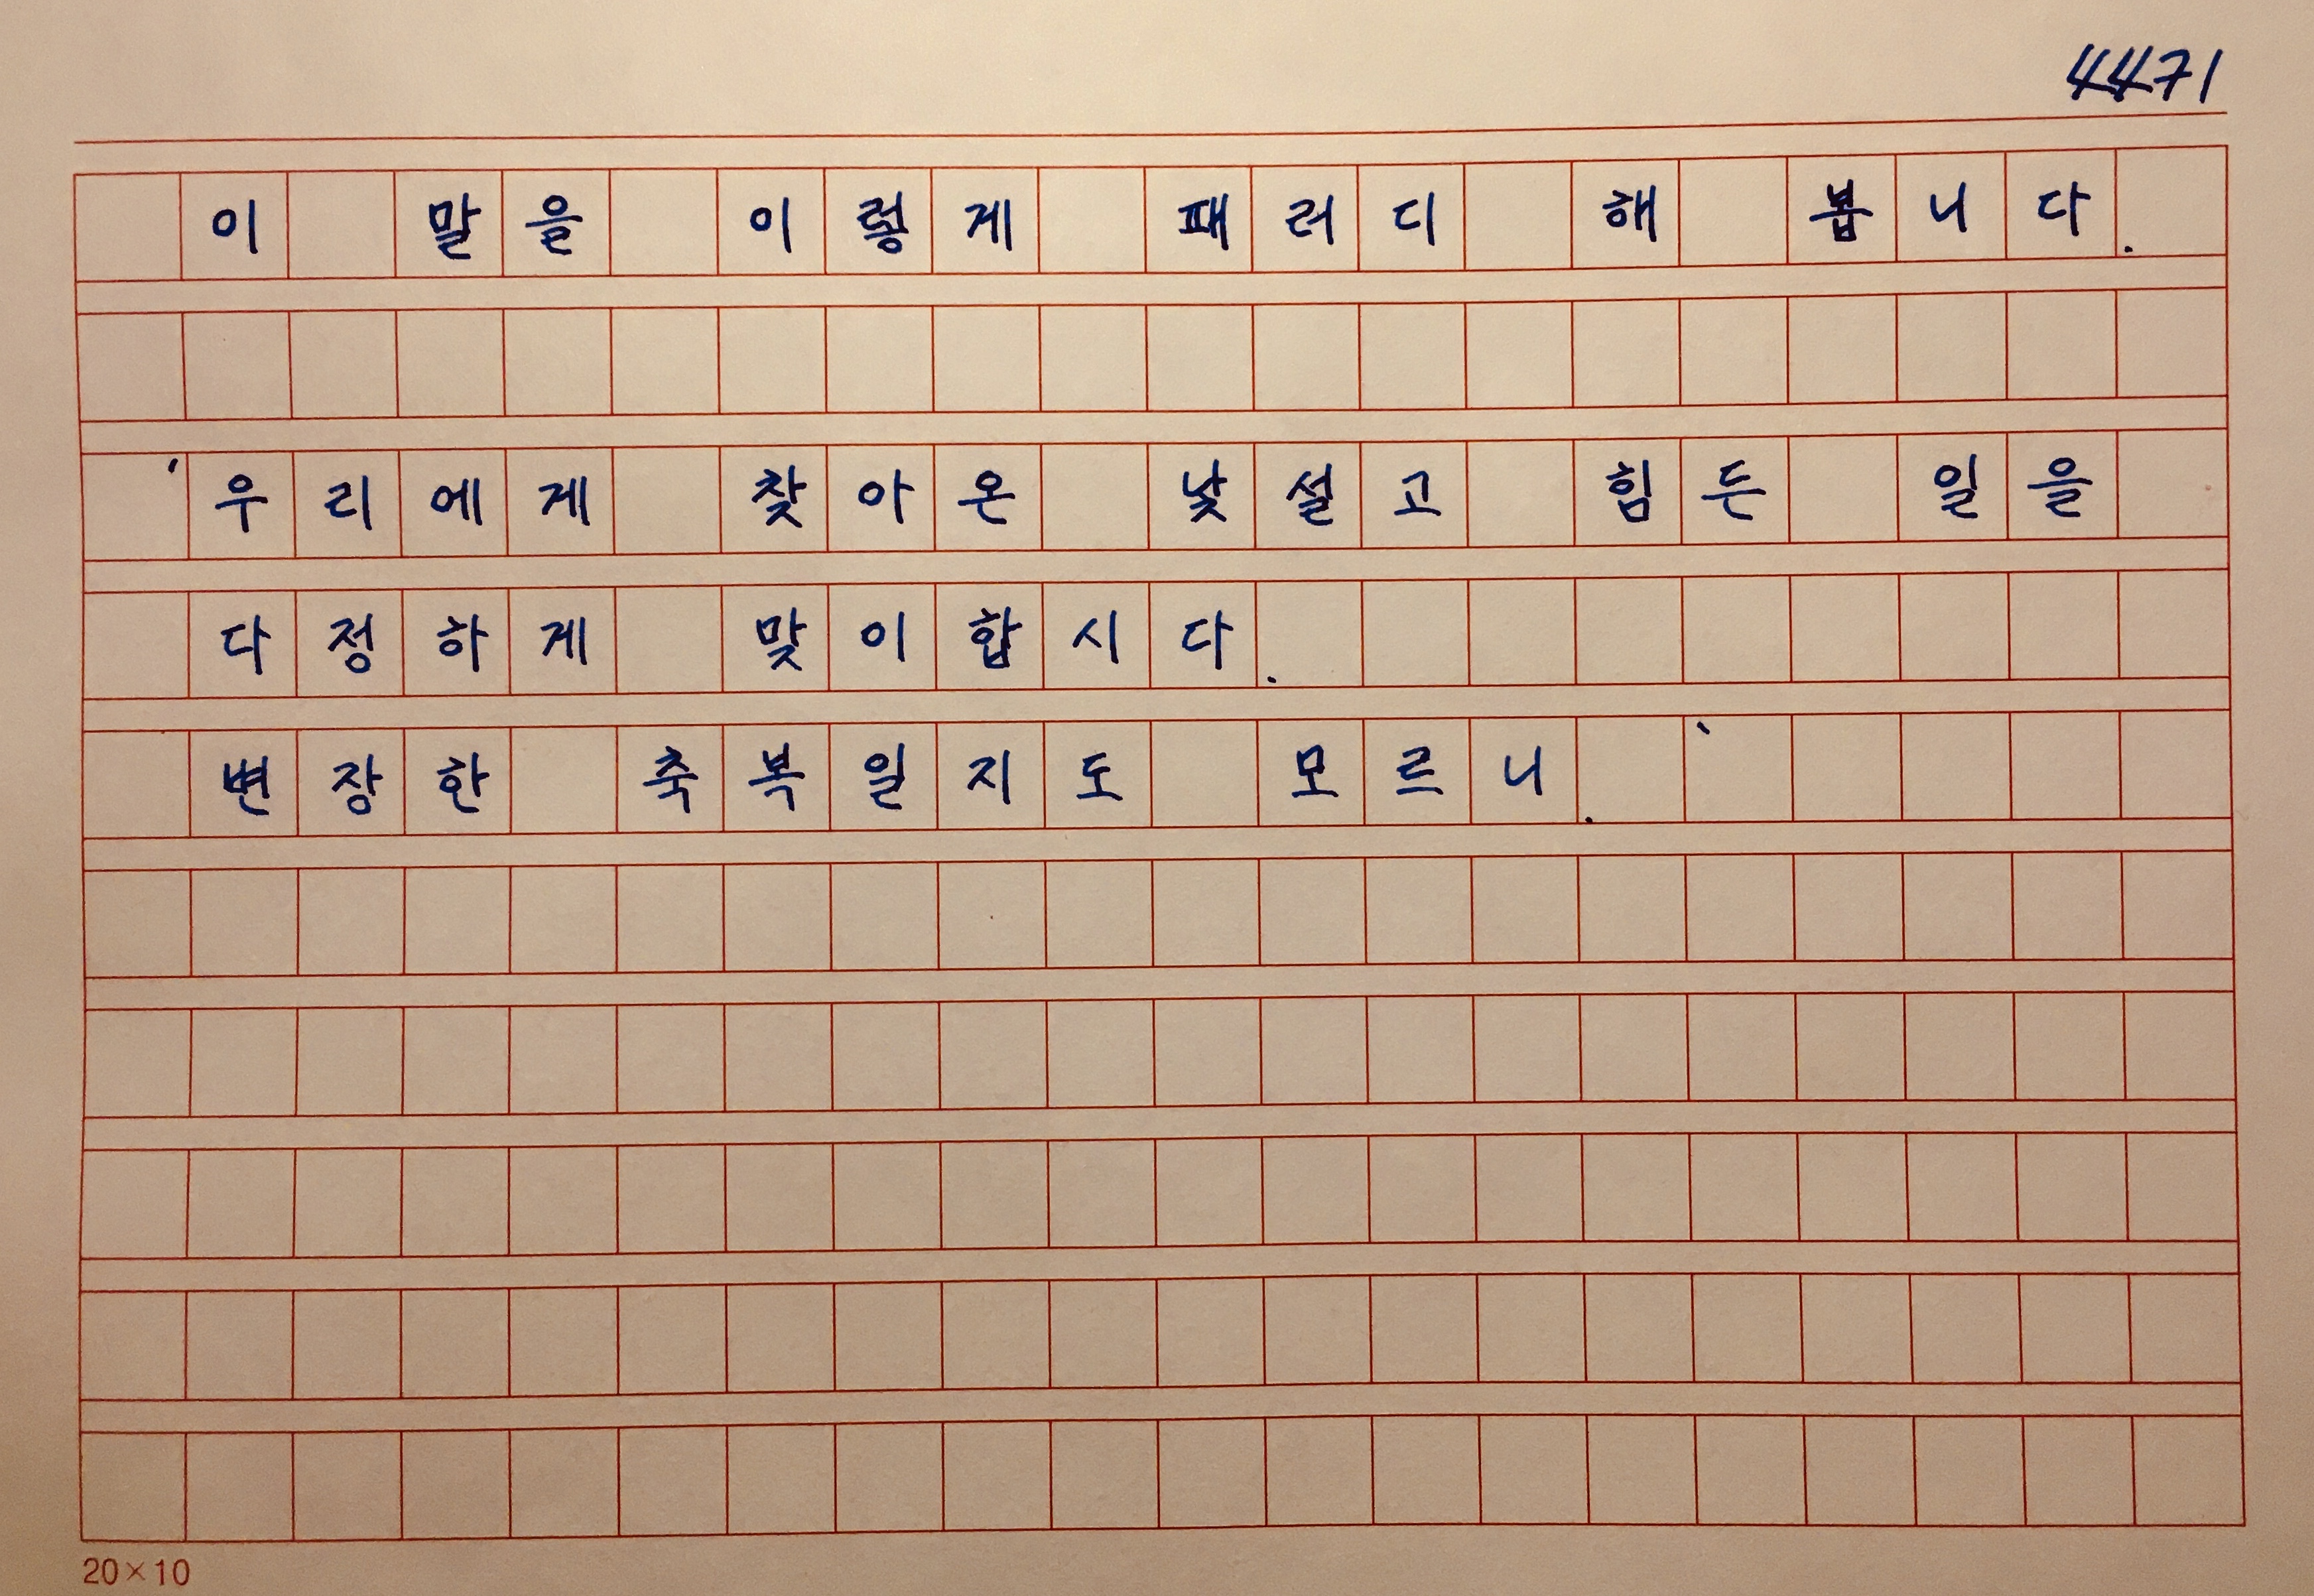 4471
이 말을 이렇게 패러디 해 봅니다.
‘우리에게 찾아온 낯설고 힘든 일을
다정하게 맞이합시다.
변장한 축복일지도 모르니.’
20×10